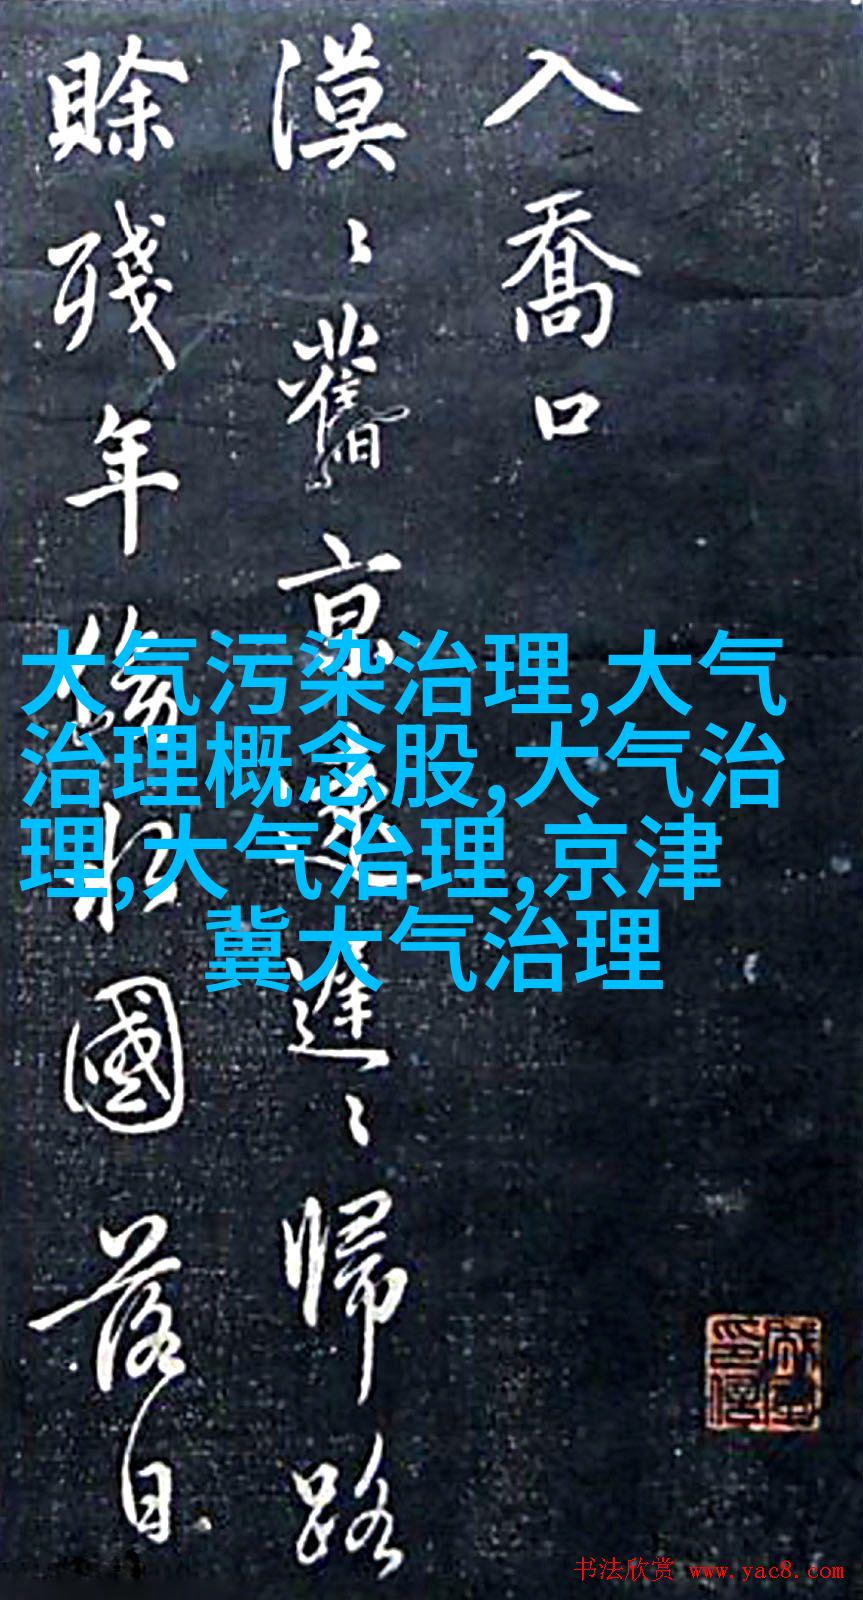 入喬口
漠〻舊京遠遲〻歸路
賒殘年傍水國落日
大气污染治理,大气
治理概念股,大气治
理,大气治理,京津
冀大气治理
书法欣赏 www.yac8.com